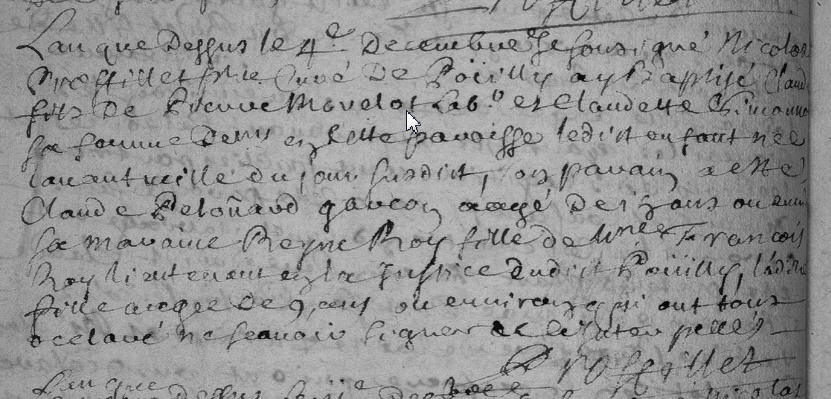 Lan que Dessus le 4e Decembre Je soussigné Nicolas
Proffillet ptre Curé De Poüilly ay Baptisé Claud
fils De Pierre Morelot Lab. et Claudette
sa femme Demt en cette paroisse ledict enfant née
lavant veille du jour susdict, son parain a esté
Claude garcon aagé De ans ou envi
sa maraine Reyne Roy fille de Francois
Roy lieutenant en la Justice dudict Poüilly, ladi
fille aagée De 9 ans ou environ qui ont tous
declaré ne scavoir signer de ce interpellés
Proffillet
Lan que Dessus Dece Nicolas